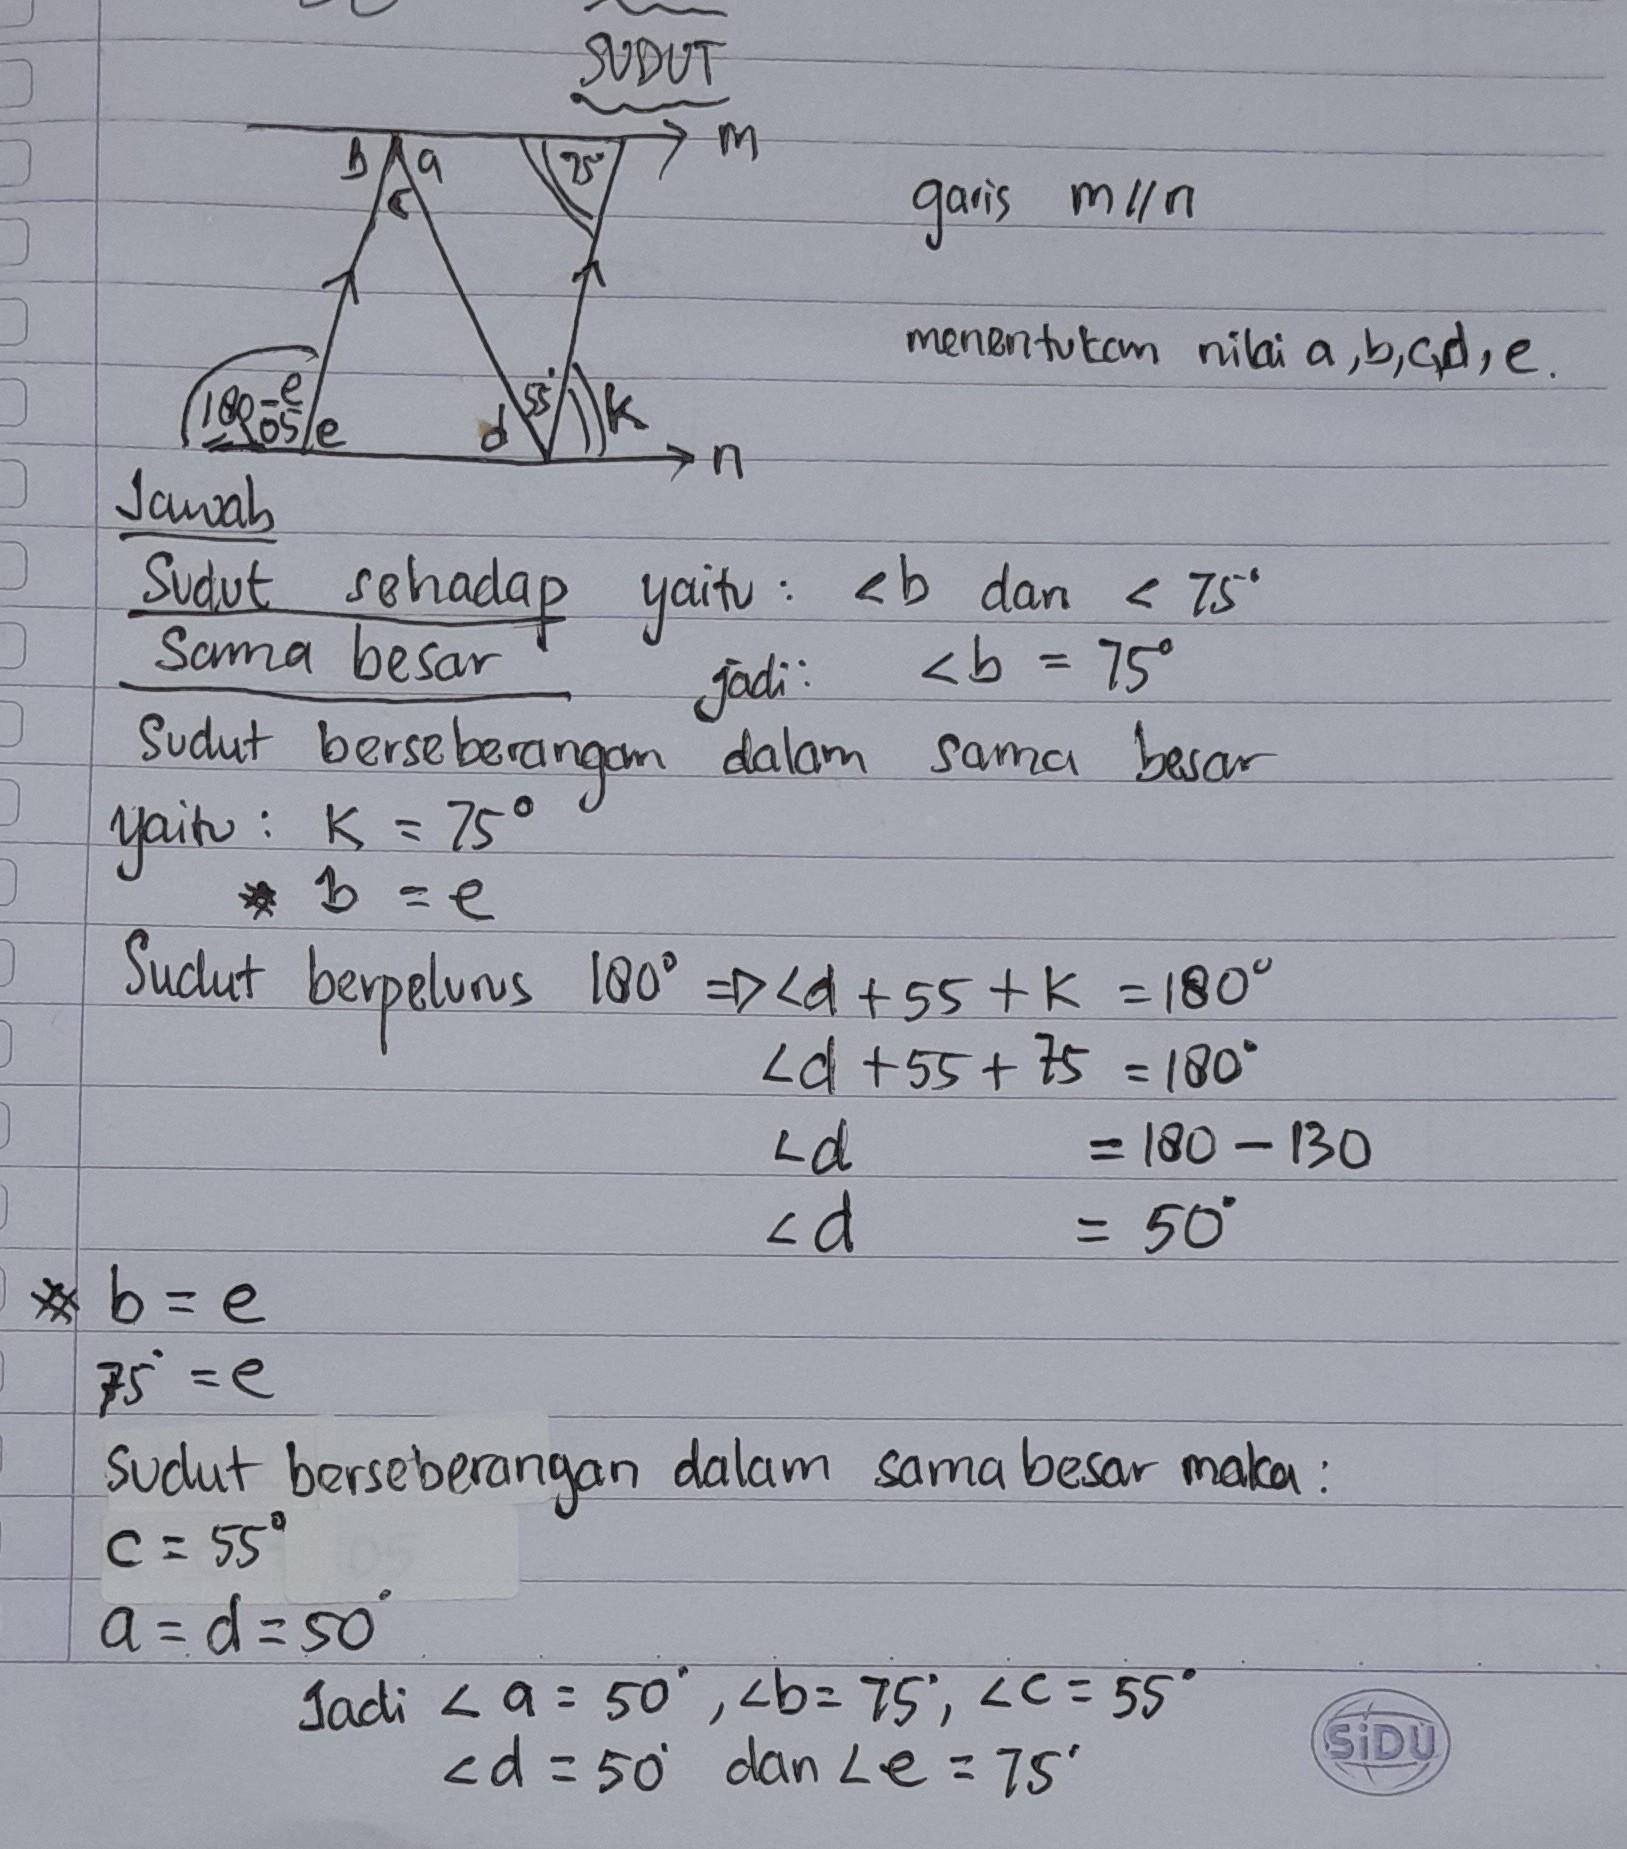 SUDUT
m
B a
75°
c
garis m // n
menentukan nilai a, b, c, d, e.
180-e
105 e
d 55° K
n
Jawab
Sudut sehadap yaitu: <b dan < 75°
Sama besar jadi: <b = 75°
Sudut berseberangan dalam sama besar
yaitu: K = 75°
* b = e
Sudut berpelurus 180° => <d + 55 + K = 180°
<d + 55 + 75 = 180°
<d = 180 - 130
<d = 50°
* b = e
75° = e
sudut berseberangan dalam sama besar maka:
c = 55°
a = d = 50°
Jadi < a = 50°, <b = 75°, <c = 55°
<d = 50° dan <e = 75°
SiDU